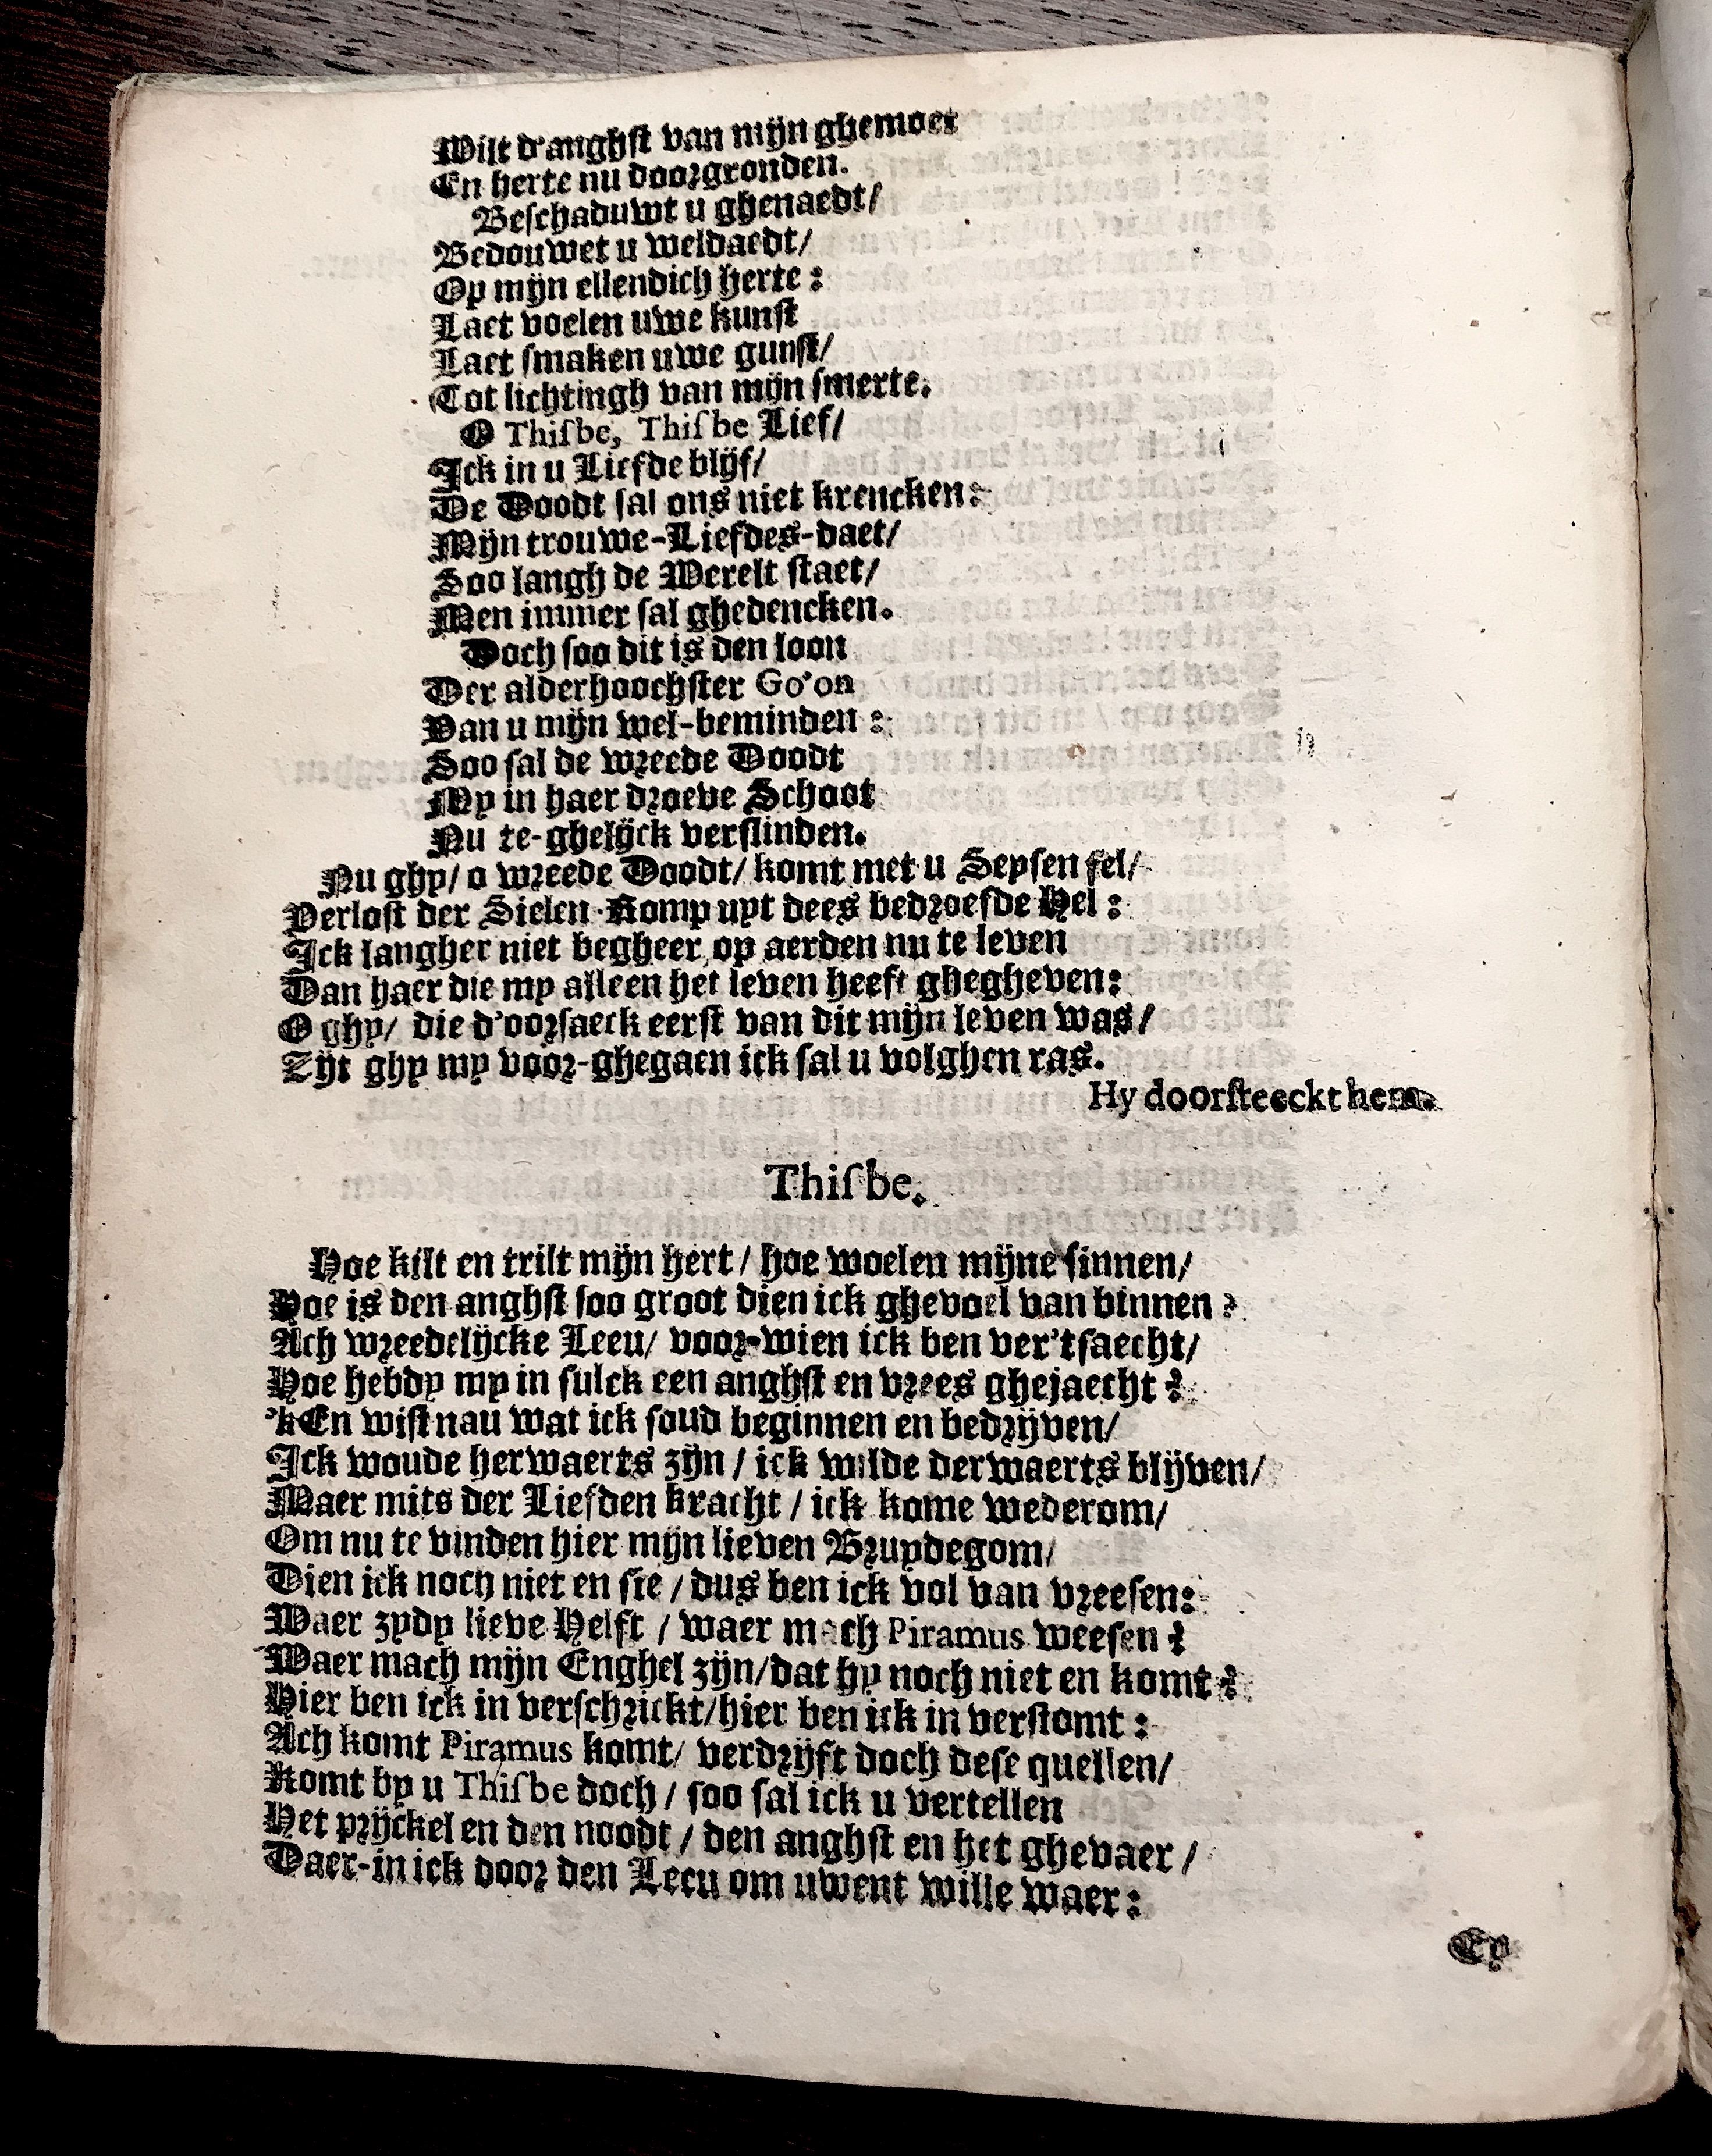 Wilt d'anghſt van mijn ghemoet
En herte nu doorgronden.
Beſchaduwt u ghenaedt/
Bedouwet u weldaedt/
Op mijn ellendich herte:
Laet voelen uwe kunſt
Laet ſmaken uwe gunſt/
Tot lichtingh van mijn ſmerte.
O Thiſbe, Thiſbe Lief/
Ick in u Liefde blijf/
De Doodt ſal ons niet krencken:
Mijn trouwe-Liefdes-daet/
Soo langh de Werelt ſtaet/
Men immer ſal ghedencken.
Doch ſoo dit is den loon
Der alderhoochſter Go'on
Van u mijn wel-beminden:
Soo ſal de wreede Doodt
My in haer droeve Schoot
Nu te-ghelijck verſlinden.
Nu ghy/ o wreede Doodt/ komt met u Seyſen fel/
Verloſt der Sielen Romp uyt dees bedroefde Hel:
Ick langher niet begheer op aerden nu te leven
Dan haer die my alleen het leven heeft ghegheven:
O ghy/ die d'oorſaeck eerſt van dit mijn leven was/
Zijt ghy my voor-ghegaen ick ſal u volghen ras.
Hy doorſteeckt hem.
Thiſbe.
Hoe kilt en trilt mijn hert/ hoe woelen mijne ſinnen/
Hoe is den anghſt ſoo groot dien ick ghevoel van binnen?
Ach wreedelijcke Leeu/ voor-wien ick ben ver'tſaecht/
Hoe hebdy my in ſulck een anghſt en vrees ghejaecht?
'k En wiſt nau wat ick ſoud beginnen en bedrijven/
Ick woude herwaerts zijn/ ick wilde derwaerts blijven/
Maer mits der Liefden kracht/ ick kome wederom/
Om nu te vinden hier mijn lieven Bruydegom/
Dien ick noch niet en ſie/ dus ben ick vol van vreeſen:
Waer zydy lieve Helft/ waer mach Piramus weeſen?
Waer mach mijn Enghel zijn/ dat hy noch niet en komt?
Hier ben ick in verſchrickt/ hier ben ick in verſtomt:
Ach komt Piramus komt/ verdrijft doch deſe quellen/
Komt by u Thiſbe doch/ ſoo ſal ick u vertellen
Het prijckel en den noodt/ den anghſt en het ghevaer/
Daer-in ick door den Leeu om uwent wille waer:
Ey